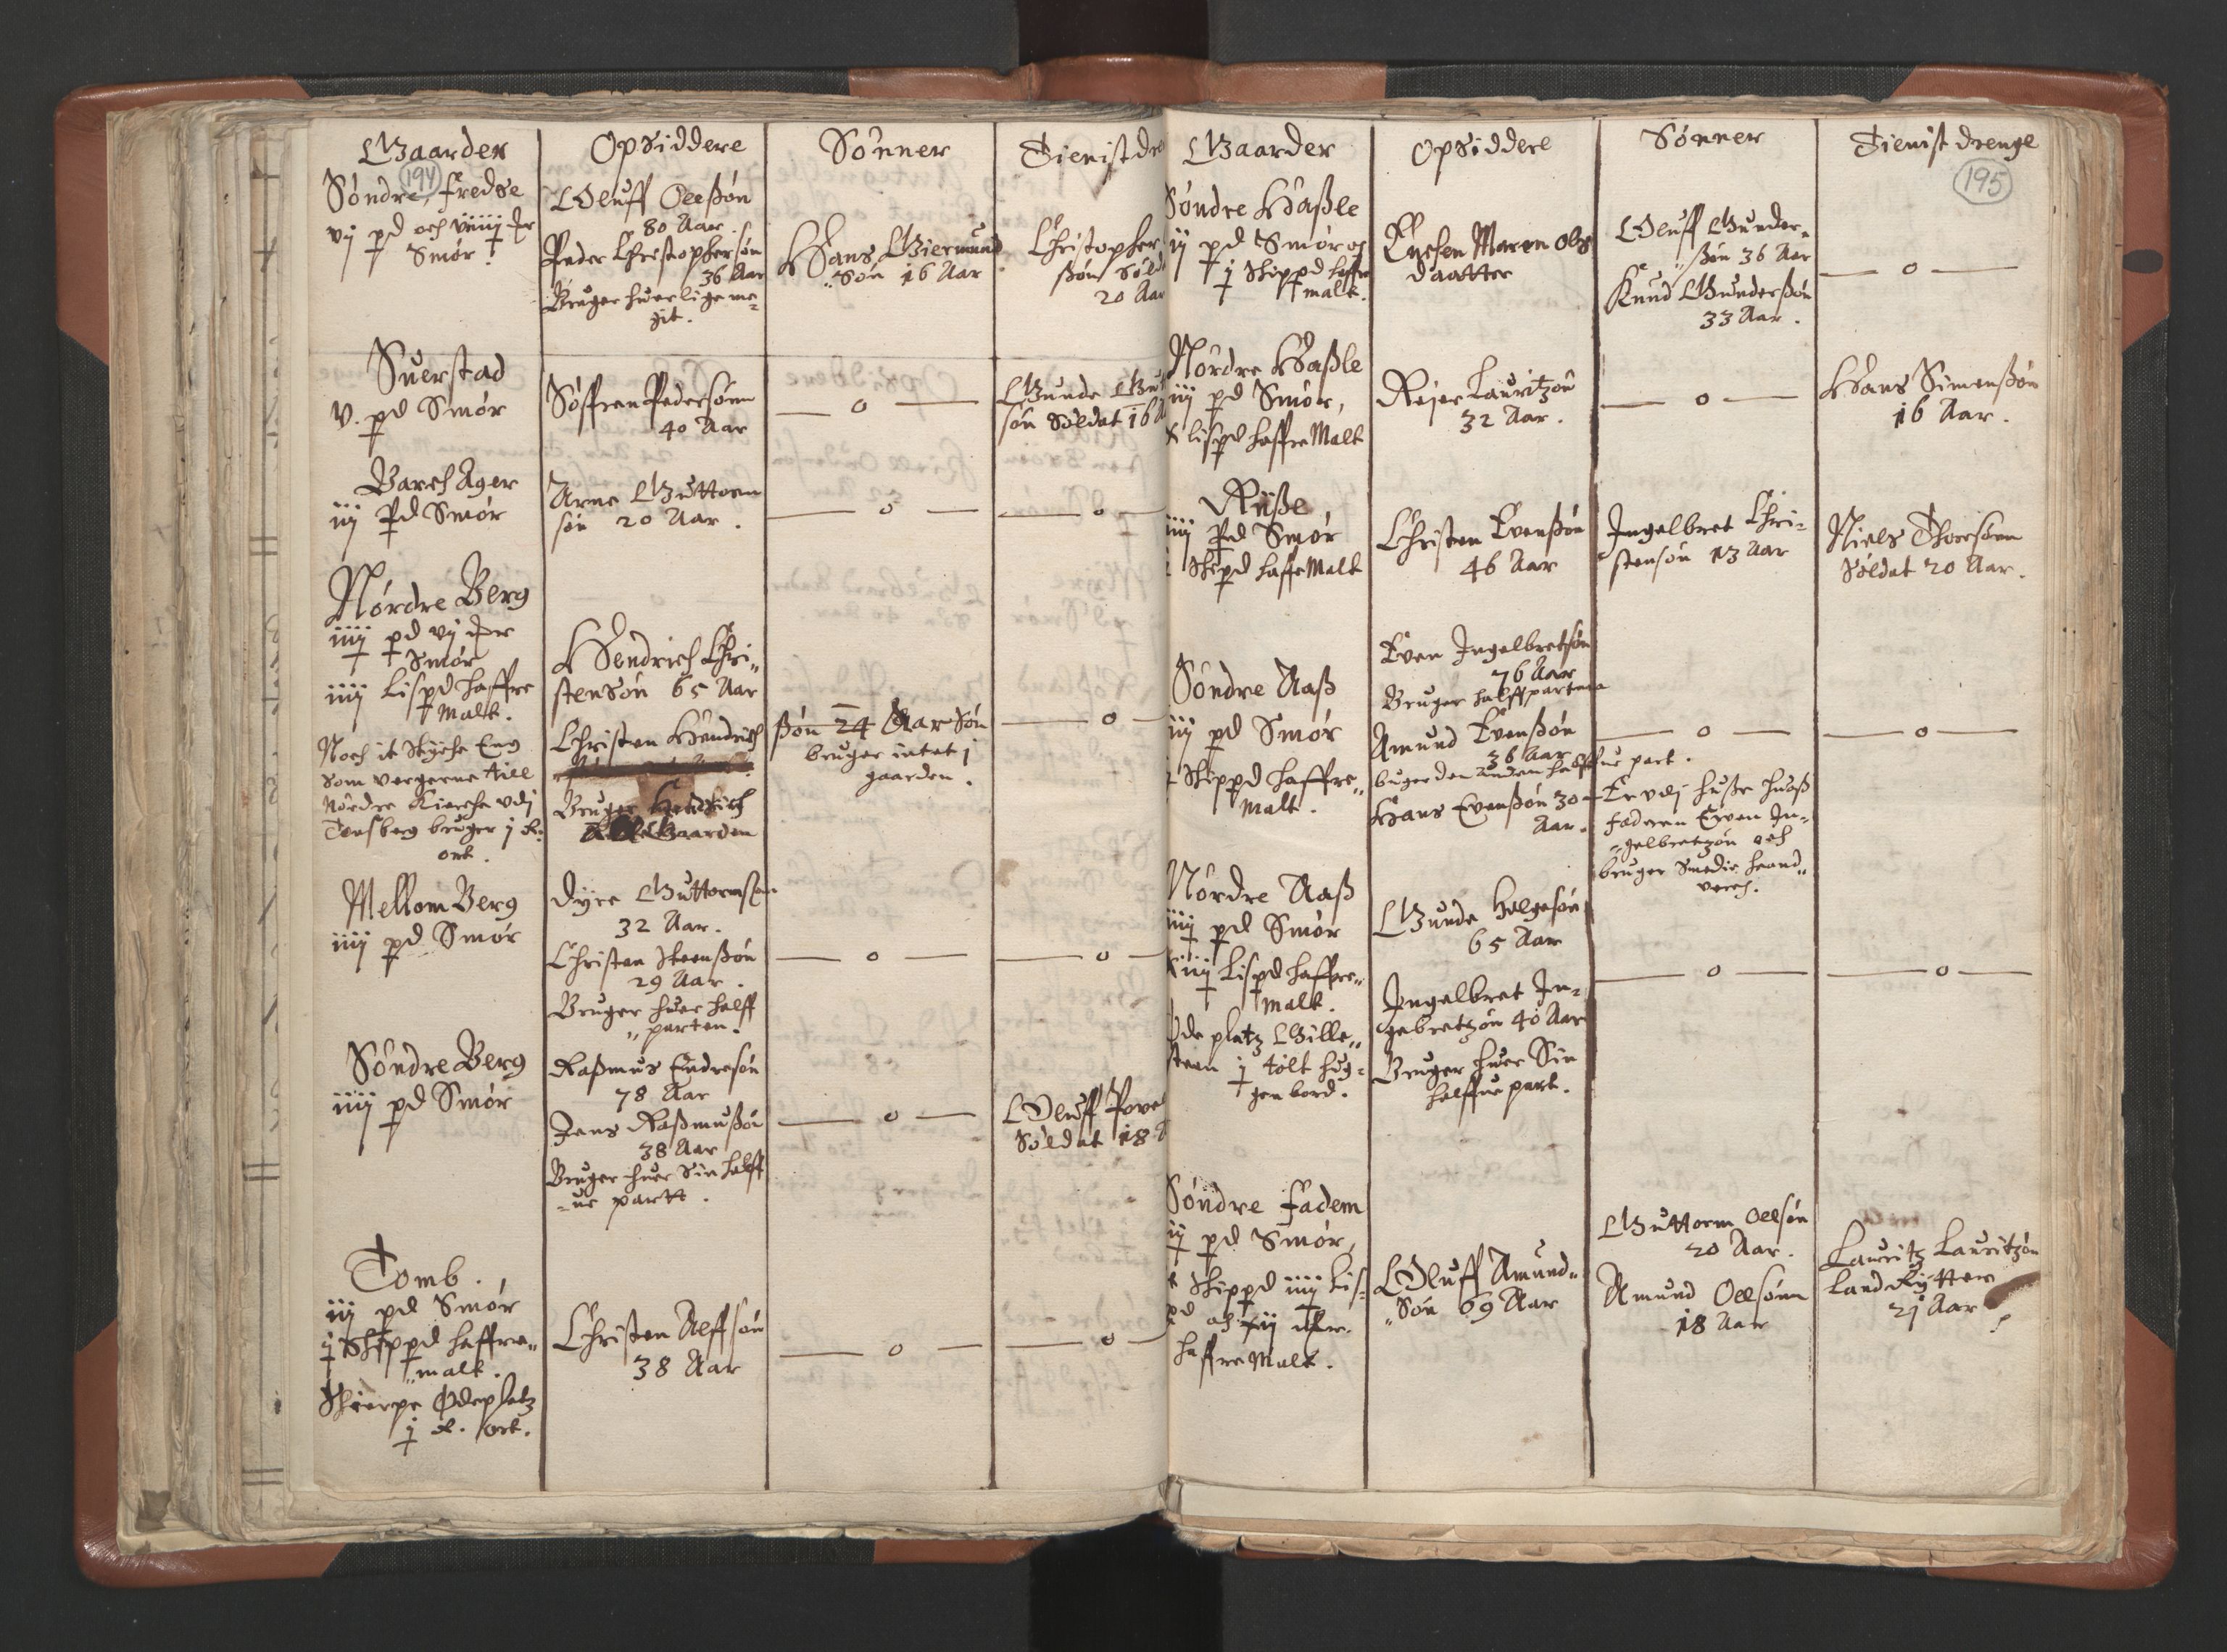 Gaarder
Opsiddere
Sönner
Tienist dre
194
Söndre Fredse
vij pd och
Smör
Oluff Olleßön
80 Aar.
Peder Christophersön
36 Aar
Bruger huer lige me-
git.
Hans Giermund
Sön 16 Aar
Christopher
ßön Sold
20 Aar
Suerstad
v. pd Smör
Söffren Pedersönn
40 Aar
— o —
Gunde
sön Soldat 16
Barch Ager
iij Pd Smör
Arne Guttorm
sön 20 Aar.
— o —
— o —
Nördre Berg
iiij pd vij
Smör
iiij Lispd Haffre
Malt.
Noch it Stycke Eng
som vergerne till
Nördre Kiercke vdj
Tönsberg bruger j
ort.
Hendrich Chri„
stensön 65 Aar
Christen Hendrich
ßön 24 Aar Sön
bruger intet i
gaarden.
— o —
Bruger Hendrich
Gaarden
Mellom Berg
iiij pd Smör
Dyre Guttormsen
32 Aar.
Christen Steenßön
29 Aar.
Bruger huer halff
„ parten.
— o —
— o —
Söndre Berg
iiij pd Smör
Raßmus Endresön
78 Aar
Jens Raßmußön
38 Aar
Bruger huer Sin halff
-ue partt.
— o —
Oluff Povel
Soldat 18
Tomb.
iij pd Smör
j Skippd haffre„
„malt.
Skierpe Ödeplatz
j ort.
Christen Alffsön
38 Aar
— o —
— o —
Gaarder
Opsiddere
Sönner
Tienist drenge
195
Söndre Haßle
ij pd Smör og
j Skippd haffre
malt.
Enchen Maren Ols
daatter
Oluff Gunder„
„ßön 36 Aar
Knud Gunderßön
33 Aar.
— o —
Nördre Haßle
iij pd Smör,
lispd haffre Malt
Reier Lauritzön
32 Aar.
— o —
Hans Simenßön
16 Aar.
Riiße
iiij Pd Smör
Skipd haffre Malt
Christen Evenßön
46 Aar
Ingelbret Chri-
stensön 13 Aar
Niels Thorsönn
Soldat 20 Aar.
Söndre Aaß
iij pd Smör
Skippd haffre„
Malt.
Even Ingelbretsön
76 Aar
Bruger halffparten
Amund Evenßön
36 Aar
buger den anden halffue part.
Hans Evenßön 30
Aar.
— o —
— o —
Er vdj huße huoß
faderen Even In-
„gelbretzön och
bruger Smedie haand„
verch.
Nördre Aaß
iiij pd Smör
Lispd haffre„
Malt.
Öde platz Gille„
steen j tölt hug-
gen bord.
Gunde Helgesön
65 Aar
Ingelbret In-
gebretzön 40 Aar
Bruger huer Sin
halffue part.
— o —
— o —
Söndre Fadem
ij pd Smör,
Skippd iiij Lis-
pd och
haffre Malt.
Oluff Amund„
„Sön 69 Aar
Guttorm Olsön
20 Aar.
Amund Olsönn
18 Aar
Lauritz Lauritzön
Land Rytter
21 Aar